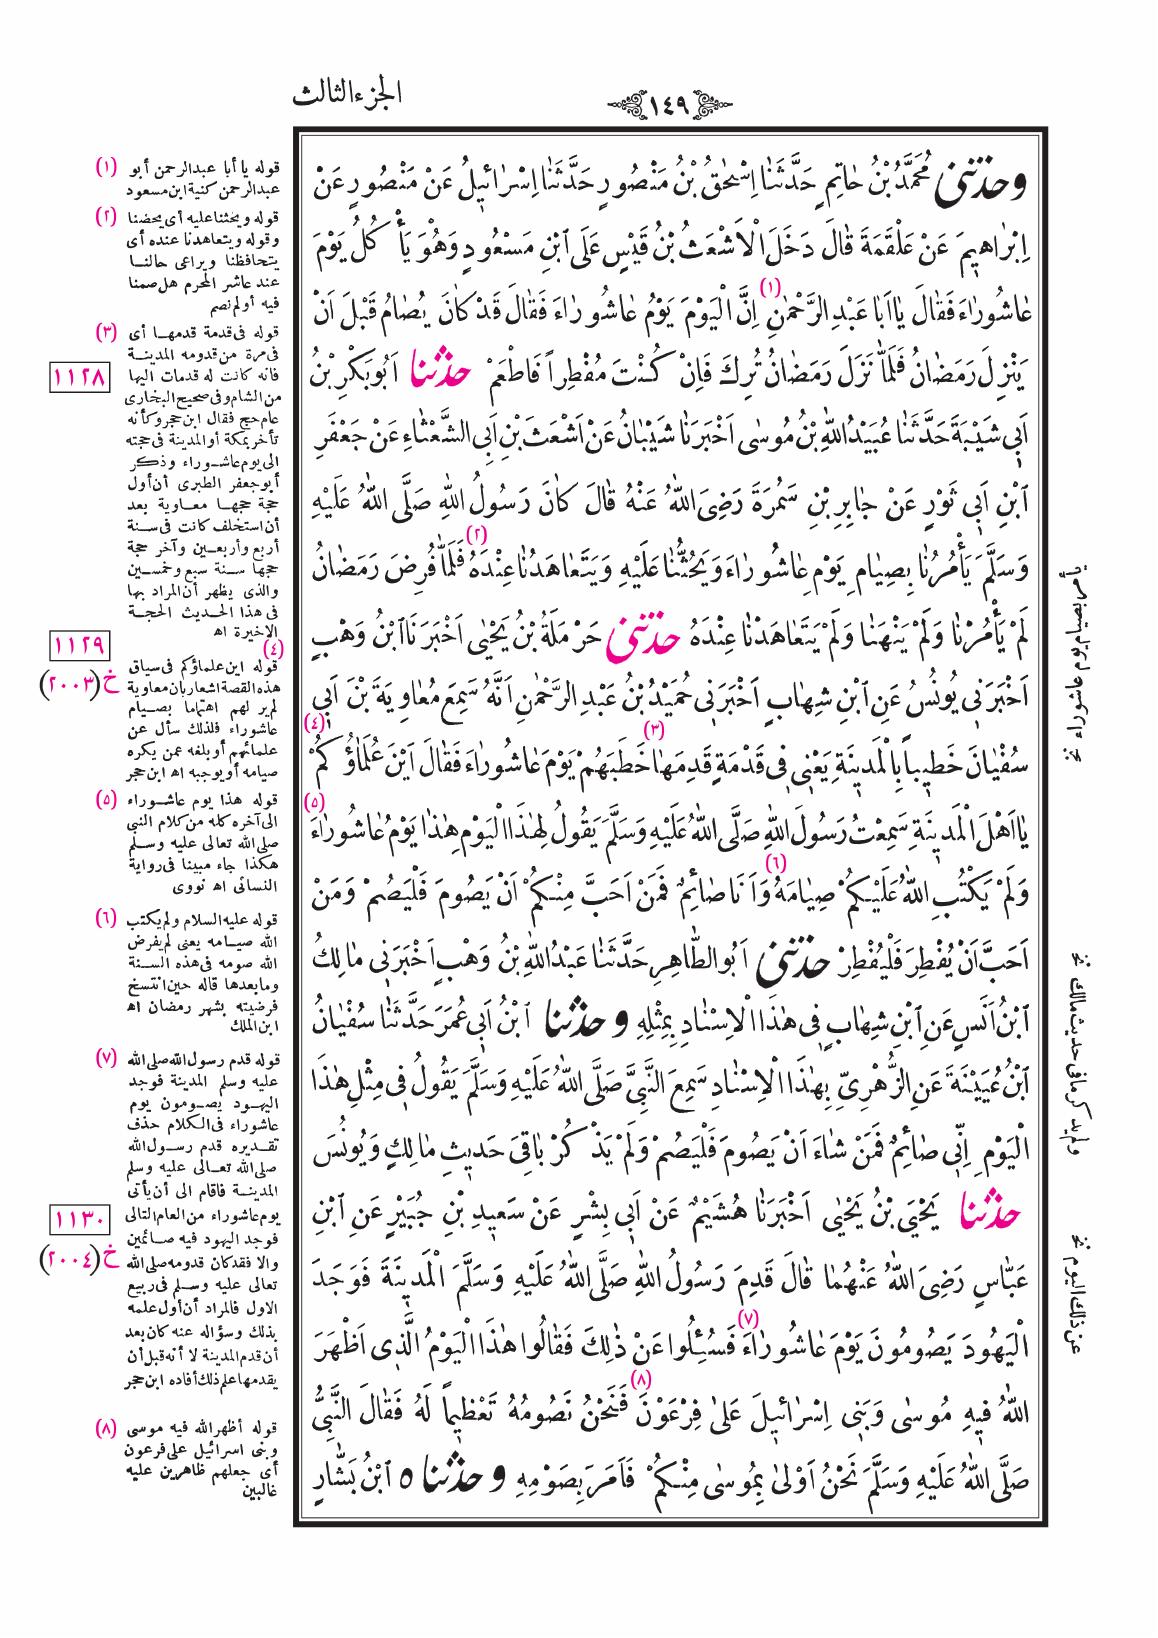 الجزء الثالث
١٤٩
وحدثنى مُحَمَّدُ بْنُ حَاتِمٍ حَدَّثَنَا اِسْحٰقُ بْنُ مَنْصُورٍ حَدَّثَنَا اِسْرَائِيلُ عَنْ مَنْصُورٍ عَنْ
اِبْرَاهِيمَ عَنْ عَلْقَمَةَ قَالَ دَخَلَ الْاَشْعَثُ بْنُ قَيْسٍ عَلَى ابْنِ مَسْعُودٍ وَهُوَ يَأْكُلُ يَوْمَ
عَاشُورَاءَ فَقَالَ يَا اَبَا عَبْدِ الرَّحْمٰنِ (١) اِنَّ الْيَوْمَ يَوْمُ عَاشُورَاءَ فَقَالَ قَدْ كَانَ يُصَامُ قَبْلَ اَنْ
يَنْزِلَ رَمَضَانُ فَلَمَّا نَزَلَ رَمَضَانُ تُرِكَ فَاِنْ كُنْتَ مُفْطِراً فَاطْعَمْ حدثنا اَبُو بَكْرِ بْنُ
اَبِى شَيْبَةَ حَدَّثَنَا عُبَيْدُ اللّٰهِ بْنُ مُوسٰى اَخْبَرَنَا شَيْبَانُ عَنْ اَشْعَثَ بْنِ اَبِى الشَّعْثَاءِ عَنْ جَعْفَرِ
ابْنِ اَبِى ثَوْرٍ عَنْ جَابِرِ بْنِ سَمُرَةَ رَضِىَ اللّٰهُ عَنْهُ قَالَ كَانَ رَسُولُ اللّٰهِ صَلَّى اللّٰهُ عَلَيْهِ
وَسَلَّمَ يَأْمُرُنَا بِصِيَامِ يَوْمِ عَاشُورَاءَ وَيَحُثُّنَا عَلَيْهِ وَيَتَعَاهَدُنَا عِنْدَهُ (٢) فَلَمَّا فُرِضَ رَمَضَانُ
لَمْ يَأْمُرْنَا وَلَمْ يَنْهَنَا وَلَمْ يَتَعَاهَدْنَا عِنْدَهُ حدثنى حَرْمَلَةُ بْنُ يَحْيٰى اَخْبَرَنَا ابْنُ وَهْبٍ
اَخْبَرَنِى يُونُسُ عَنِ ابْنِ شِهَابٍ اَخْبَرَنِى حُمَيْدُ بْنُ عَبْدِ الرَّحْمٰنِ اَنَّهُ سَمِعَ مُعَاوِيَةَ بْنَ اَبِى
سُفْيَانَ خَطِيباً بِالْمَدِينَةِ يَعْنِى فِى قَدْمَةٍ قَدِمَهَا (٣) خَطَبَهُمْ يَوْمَ عَاشُورَاءَ فَقَالَ اَيْنَ عُلَمَاؤُكُمْ (٤)
يَا اَهْلَ الْمَدِينَةِ سَمِعْتُ رَسُولَ اللّٰهِ صَلَّى اللّٰهُ عَلَيْهِ وَسَلَّمَ يَقُولُ لِهٰذَا الْيَوْمِ هٰذَا يَوْمُ عَاشُورَاءَ (٥)
وَلَمْ يَكْتُبِ اللّٰهُ عَلَيْكُمْ صِيَامَهُ (٦) وَاَنَا صَائِمٌ فَمَنْ اَحَبَّ مِنْكُمْ اَنْ يَصُومَ فَلْيَصُمْ وَمَنْ
اَحَبَّ اَنْ يُفْطِرَ فَلْيُفْطِرْ حدثنى اَبُو الطَّاهِرِ حَدَّثَنَا عَبْدُ اللّٰهِ بْنُ وَهْبٍ اَخْبَرَنِى مَالِكُ
ابْنُ اَنَسٍ عَنِ ابْنِ شِهَابٍ فِى هٰذَا الْاِسْنَادِ بِمِثْلِهِ وحدثنا ابْنُ اَبِى عُمَرَ حَدَّثَنَا سُفْيَانُ
ابْنُ عُيَيْنَةَ عَنِ الزُّهْرِىِّ بِهٰذَا الْاِسْنَادِ سَمِعَ النَّبِىَّ صَلَّى اللّٰهُ عَلَيْهِ وَسَلَّمَ يَقُولُ فِى مِثْلِ هٰذَا
الْيَوْمِ اِنِّى صَائِمٌ فَمَنْ شَاءَ اَنْ يَصُومَ فَلْيَصُمْ وَلَمْ يَذْكُرْ بَاقِىَ حَدِيثِ مَالِكٍ وَيُونُسَ
حدثنا يَحْيَى بْنُ يَحْيٰى اَخْبَرَنَا هُشَيْمٌ عَنْ اَبِى بِشْرٍ عَنْ سَعِيدِ بْنِ جُبَيْرٍ عَنِ ابْنِ
عَبَّاسٍ رَضِىَ اللّٰهُ عَنْهُمَا قَالَ قَدِمَ رَسُولُ اللّٰهِ صَلَّى اللّٰهُ عَلَيْهِ وَسَلَّمَ الْمَدِينَةَ فَوَجَدَ
الْيَهُودَ يَصُومُونَ يَوْمَ عَاشُورَاءَ (٧) فَسُئِلُوا عَنْ ذٰلِكَ فَقَالُوا هٰذَا الْيَوْمُ الَّذِى اَظْهَرَ
اللّٰهُ فِيهِ مُوسٰى وَبَنِى اِسْرَائِيلَ عَلٰى فِرْعَوْنَ (٨) فَنَحْنُ نَصُومُهُ تَعْظِيماً لَهُ فَقَالَ النَّبِىُّ
صَلَّى اللّٰهُ عَلَيْهِ وَسَلَّمَ نَحْنُ اَوْلٰى بِمُوسٰى مِنْكُمْ فَاَمَرَ بِصَوْمِهِ وحدثنا ٥ ابْنُ بَشَّارٍ
(١) قوله يا أبا عبدالرحمن أبو
عبدالرحمن كنية ابن مسعود
(٢) قوله ويحثنا عليه أى يحضنا
وقوله ويتعاهدنا عنده أى
يتحافظنا ويراعى حالنا
عند عاشر المحرم هل صمنا
فيه أو لم نصم
(٣) قوله فى قدمة قدمها أى
فى مرة من قدومه المدينة
فانه كانت له قدمات اليها
من الشام وفى صحيح البخارى
عام حج فقال ابن حجر وكأنه
تأخر بمكة أو المدينة فى حجته
الى يوم عاشوراء وذكر
أبو جعفر الطبرى أن أول
حجة حجها معاوية بعد
أن استخلف كانت فى سنة
أربع وأربعين وآخر حجة
حجها سنة سبع وخمسين
والذى يظهر أن المراد بها
فى هذا الحديث الحجة
الاخيرة اه
(٤)
قوله اين علماؤكم فى سياق
هذه القصة اشعار بان معاوية
لم ير لهم اهتماما بصيام
عاشوراء فلذلك سأل عن
علمائهم أو بلغه عمن يكره
صيامه أو يوجبه اه ابن حجر
(٥) قوله هذا يوم عاشوراء
الى آخره كله من كلام النبى
صلى الله تعالى عليه وسلم
هكذا جاء مبينا فى رواية
النسائى اه نووى
(٦) قوله عليه السلام ولم يكتب
الله صيامه يعنى لم يفرض
الله صومه فى هذه السنة
وما بعدها قاله حين انتسخ
فرضيته بشهر رمضان اه
ابن الملك
(٧) قوله قدم رسول الله صلى الله
عليه وسلم المدينة فوجد
اليهود يصومون يوم
عاشوراء فى الكلام حذف
تقديره قدم رسول الله
صلى الله تعالى عليه وسلم
المدينة فاقام الى أن يأتى
يوم عاشوراء من العام التالى
فوجد اليهود فيه صائمين
والا فقد كان قدومه صلى الله
تعالى عليه وسلم فى ربيع
الاول فالمراد أن أول علمه
بذلك وسؤاله عنه كان بعد
أن قدم المدينة لا أنه قبل أن
يقدمها علم ذلك أفاده ابن حجر
(٨) قوله أظهر الله فيه موسى
وبنى اسرائيل على فرعون
أى جعلهم ظاهرين عليه
غالبين
١١٢٨
١١٢٩
خ (٢٠٠٣)
١١٣٠
خ (٢٠٠٤)
يأمر بصيام يوم عاشوراء نخ
ولم يذكر ما فى حديث مالك نخ
عن ذلك اليوم نخ